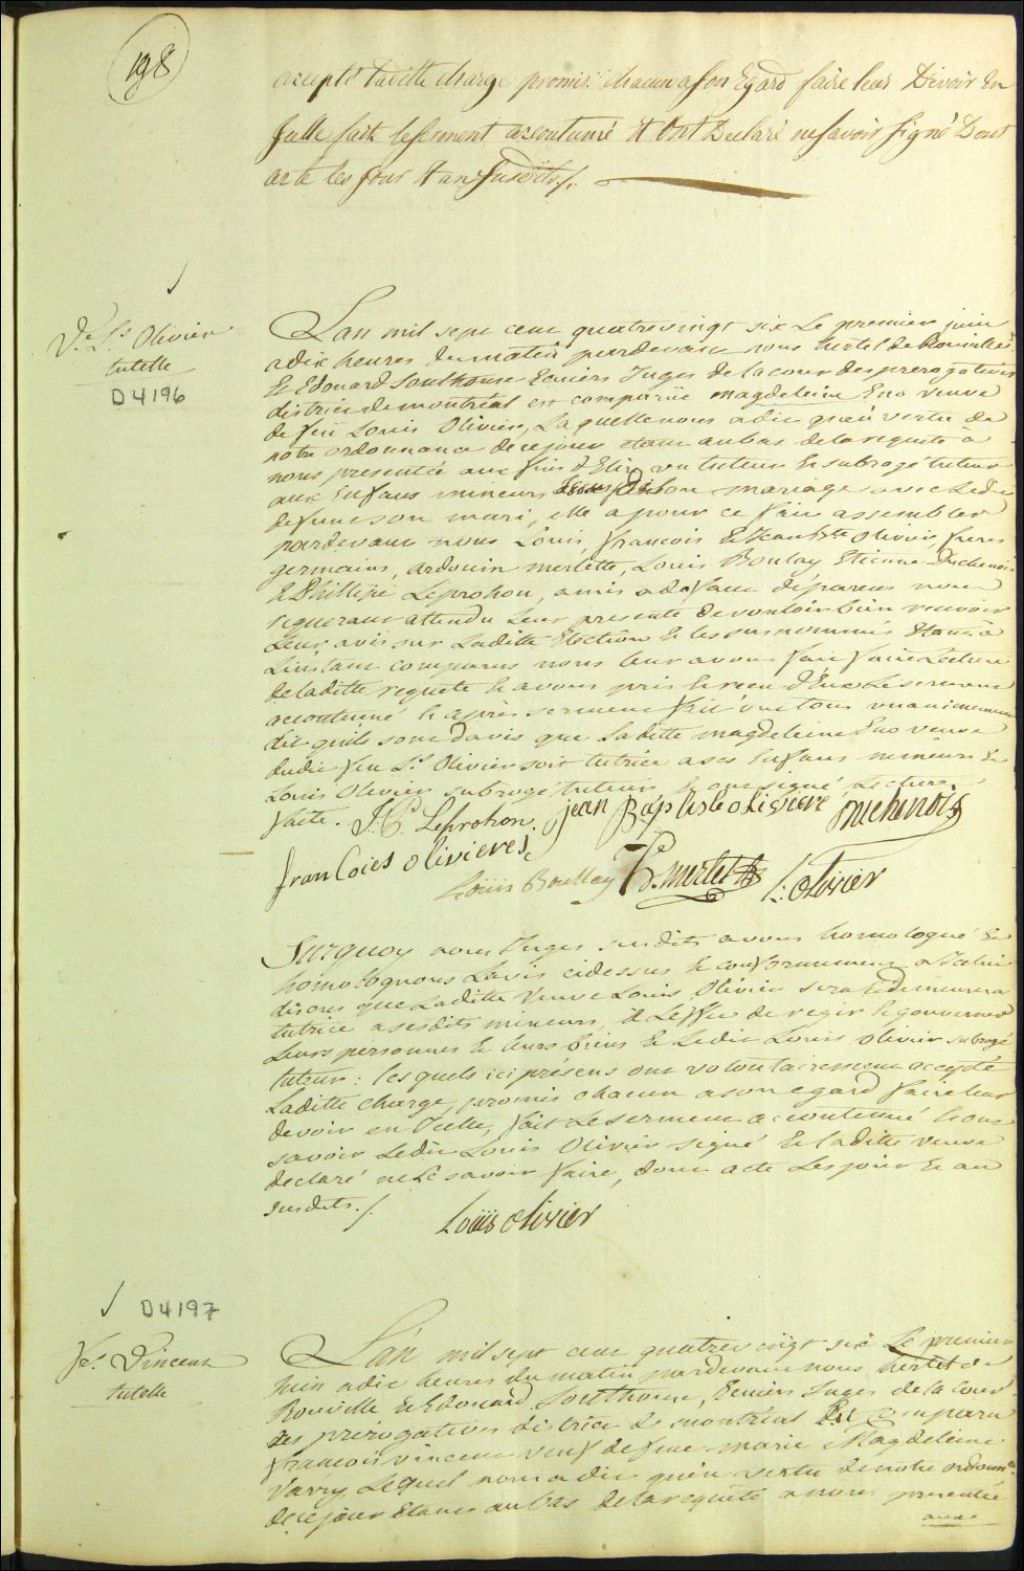 198
accepté laditte charge promis chacun a son Egard faire leur Devoir En
Jcelle fait le serment accoutumé & Ont Declaré ne savoir signé Dont
acte les jour & an Susdits /.
Ve. Ls. Olivier
tutelle
D4196
Lan mil sept cent quatrevingt six Le premier juin
a dix heures du matin pardevant nous hertel de Rouville
& Edouard Southouse Ecuiers Juges de la cour des prerogatives
district de montréal est comparüe magdeleine Eno veuve
de feu Louis Olivier, Laquelle nous a dit qu'en vertu de
notre ordonnance de ce jour étant au bas de la requete à
nous presentée aux fins d'Elire un tuteur & subrogé tuteur
aux Enfans mineurs mariage avec Ledit
defunt son mari, elle a pour ce fait assembler
pardevant nous Louis, francois & Jean Bte olivier, freres
germains, ardouin merlette, Louis Boulay Etienne Duchenois
& Phillipe Leprohon, amis a defaut de parens nous
requerant attendu Leur presence de vouloir bien recevoir
Leur avis sur Laditte Election & les susnommés Etant à
L'instant comparus nous leur avons fait faire Lecture
de laditte requete & avons pris & recu d'Eux Le serment
accoutumé & après serment fait ont tous unanimement
dit quils sont d'avis que Laditte magdeleine Eno veuve
dudit feu Ls. Olivier soit tutrice a ses Enfans mineurs &
Louis Olivier subrogé tuteur & ont signé, Lecture
faite. J. P. Leprohon. jean Baptiste oliviere Duchenois
franCoies olivieres
Louis Boullay merlet L: olivier
Surquoy nous Juges susdits avons homologué &
homologuons Lavis cidessus & conformement a Icelui
disons que Laditte Veuve Louis Olivier sera & demeurera
tutrice a sesdits mineurs, à L'effet de regir & gouverner
Leurs personnes & leurs biens & Ledit Louis olivier subrogé
tuteur: lesquels ici présens ont volontairement accepté
Laditte charge, promis chacun a son egard faire leur
devoir en Icelle, fait Le serment accoutumé & ont
savoir Ledit Louis Olivier signé & laditte veuve
declaré ne Le savoir faire, dont acte Les jour & an
susdits. /.
Louis olivier
D4197
frs. Vincent
tutelle
L'an mil sept cent quatre vingt six Le premier
Juin a dix heures du matin pardevant nous hertel de
Rouville & Edouard Southouse, Ecuiers Juges de la Cour
des prérogatives district de montréal Est Comparu
francois vincent veuf de feue marie Magdeleine
Varry Lequel nous a dit qu'en vertu de notre ordonnce
de ce jour Etant au bas de la requête a nous presentée
aux